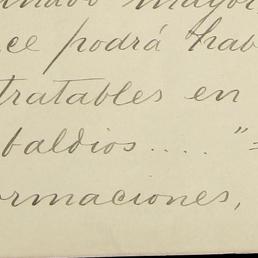 ce podrá hab
tratables en
baldios.... "=
ormaciones,